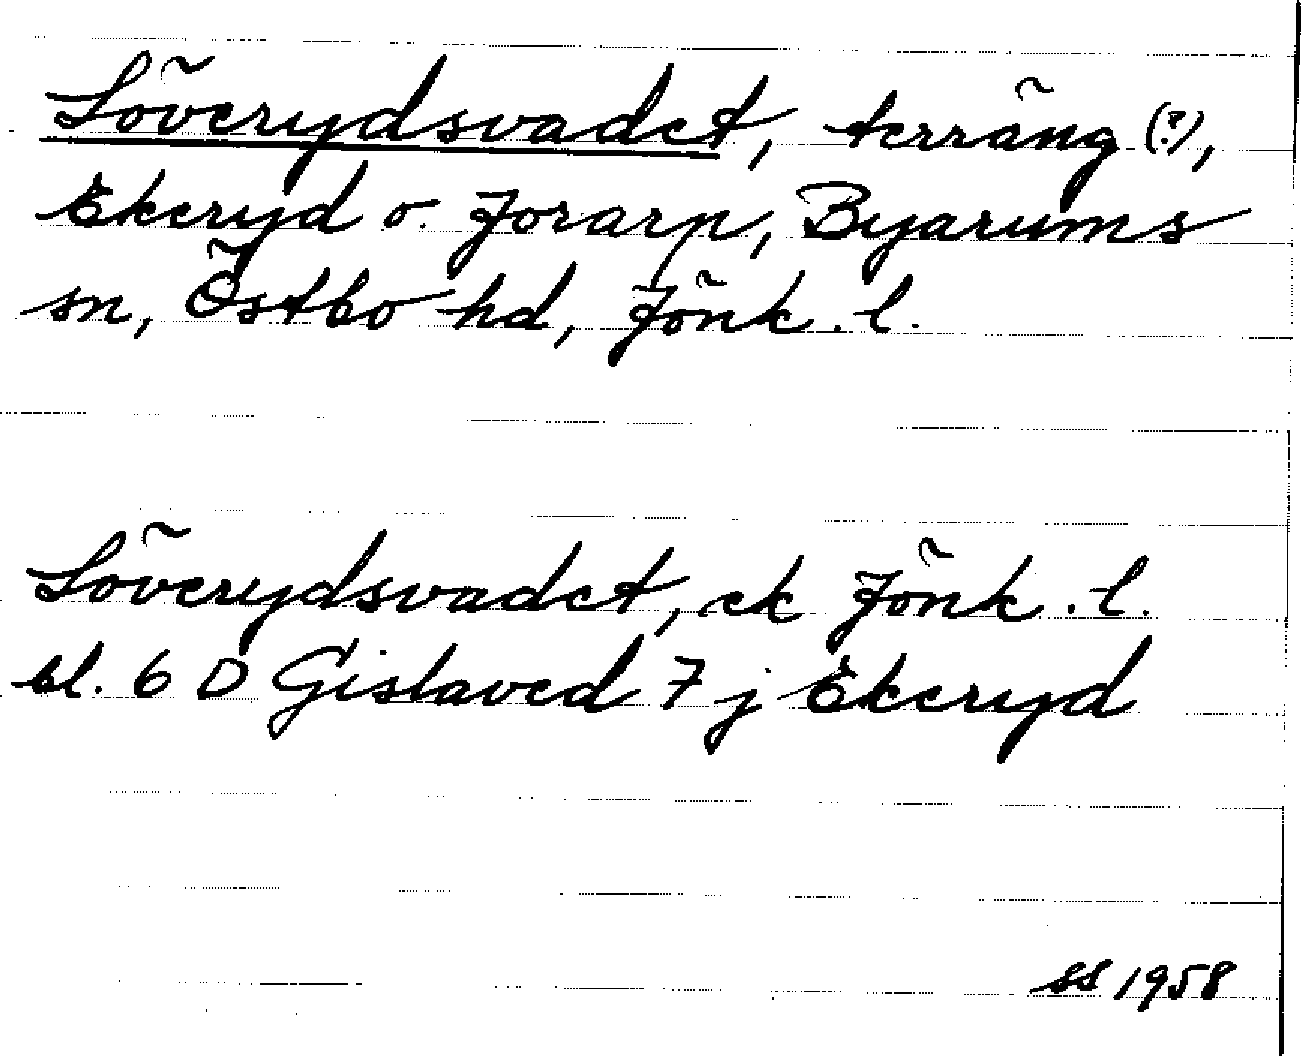 Löverydsvadet, terräng (?),
Ekeryd o. Jorarp, Byarums
sn, Östbo hd, Jönk. l.
Löverydsvadet, ek Jönk. l.
bl. 6 D Gislaved 7 j Ekeryd
SS 1958